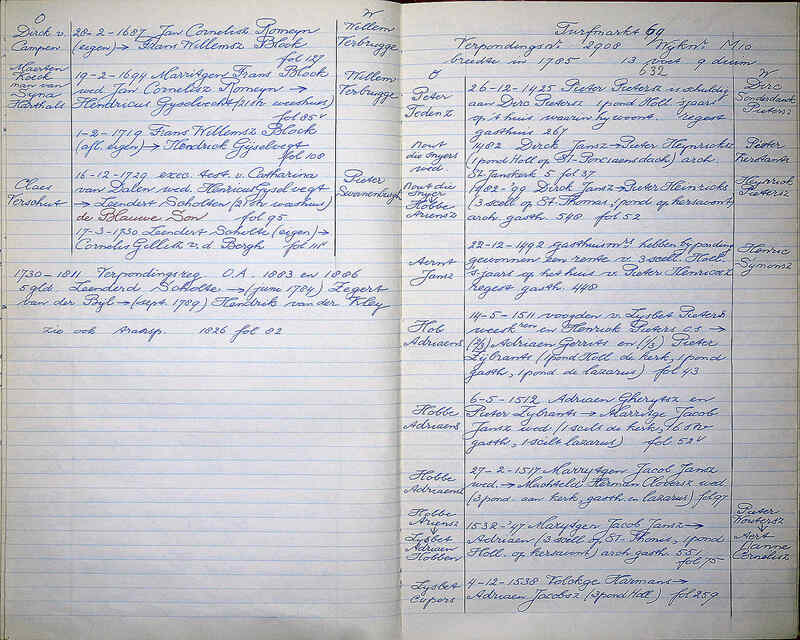 O
W
Dirck v.
Campen
28-2-1687 Jan Cornelisz Romeyn
(eigen) → Frans Willemsz Block
fol 127
Willem
Terbrugge
Maerten
Koeck
man van
Syna
Harthals
19-2-1694 Marritgen Frans Block
wed Jan Cornelisz Romeyn →
Hendricus Gyselvecht (2/5 weeshuis)
fol 85v
Willem
Terbrugge
1-2-1719 Frans Willemsz Block
(afl. eigen) → Hendrick Gyselvegt
fol 108
Claes
Terschut
16-12-1729 exec. test. v. Catharina
van Dalen wed. Henricus Gyselvegt
→ Leendert Scholten (2/5 weeshuis)
de Blauwe Son fol 95
Pieter
Swanenburg
17-3-1730 Leendert Scholte (eigen) →
Cornelis Gellith v. d. Bergh fol 111
1730-1811 Verpondingsreg O.A. 1883 en 1886
5 gld. Leenderd Scholte → (june 1784) Zegert
van der Byl → (sept. 1789) Hendrik van der Kley
zie ook 1826 fol 82
Turfmarkt 69
Verpondingsnr 2908 Wyknr M10
breedte in 1785 13 voet 9 duim
632
O
W
Peter
Todenz
26-12-1425 Pieter Pietersz is schuldig
aan Dirc Pietersz 1 pond Holl 's jaars
op 't huis waarin hy woont. regest
gasthuis 267
Dirc
Sonderdanck
Pietersz
Nout
die Snyers
wed
1482 Dirck Jansz → Pieter Heynricksz
(1 pond Holl op St-Ponciaensdach) arch.
St Janskerk 5 fol 37
Pieter
Nout die
Snyer
↓
Hobbe
Ariensz
1482-'99 Dirck Jansz → Pieter Heinricks
(3 scell. op St. Thomas, 1 pond op kersavont)
arch. gasth. 548 fol 52
Heynrick
Pietersz
Aernt
Jansz
22-12-1492 gasthuismrs hebben by ponding
gewonnen een rente v. 3 scell. Holl.
's jaars op het huis v. Pieter Henricxz
regest gasth. 448
Henric
Symonsz
Hob
Adriaens
14-5-1511 voogden v. Lysbet Pieters
weeskren en Henrick Pieters c.s. →
(2/3) Adriaen Gerrits en (1/3) Pieter
Lybrants (1 pond Holl de kerk, 1 pond
gasth, 1 pond de lazarus) fol 43
Hobbe
Adriaens
6-5-1512 Adriaen Gherytsz en
Pieter Lybrants → Marritge Jacob
Jansz wed (1 scilt de kerk, 16 stv
gasth, 1 scilt lazarus) fol 52v
Hobbe
Adriaens
27-2-1517 Marrytgen Jacob Jansz
wed. → Machteld Herman Clobersz wed
(3 pond. aan kerk, gasth. en lazarus) fol 97
Hobbe
Ariensz
↓
Lysbet
Adriaen
Hobben
1532-'47 Marytgen Jacob Jansz →
Adriaen (3 scell op St-Thomis, 1 pond
Holl. op kersavont) arch gasth. 551
fol 75
Pieter
Woutersz
↓
Aert
Hanne
Cornelisz
Lysbet
Cupers
4-12-1538 Volckge Harmans →
Adriaen Jacobsz (3 pond Holl) fol 259